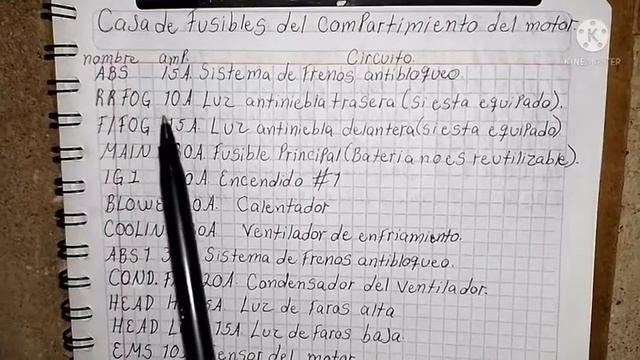 Caja de fusibles del compartimiento del motor
KINEMASTER
nombre amp. Circuito.
ABS 15A. Sistema de Frenos antibloqueo.
RRFOG 10A Luz antiniebla trasera (si esta equipado).
F/FOG 15A. Luz antiniebla delantera (si esta equipado)
MAIN 0A. Fusible Principal (Bateria no es reutilizable).
IG1 0A Encendido #1
BLOWE 0A. Calentador
COOLIN 0A Ventilador de enfriamiento.
ABS1 Sistema de Frenos antibloqueo.
COND. F 20A. Condensador del Ventilador.
HEAD H 5A Luz de faros alta
HEAD L 15A Luz de faros baja
EMS 10 ensor del motor